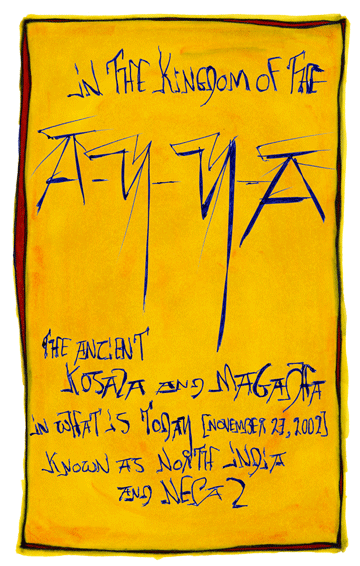 in THE KINGDOM OF THE
A-y-y-A
THE ANCIENT
KOSALA AND MAGADHA
in WHAT iS TODAY [NOVEMBER 23, 2002]
KNOWN AS NORTH iNDiA
AND NEPAL